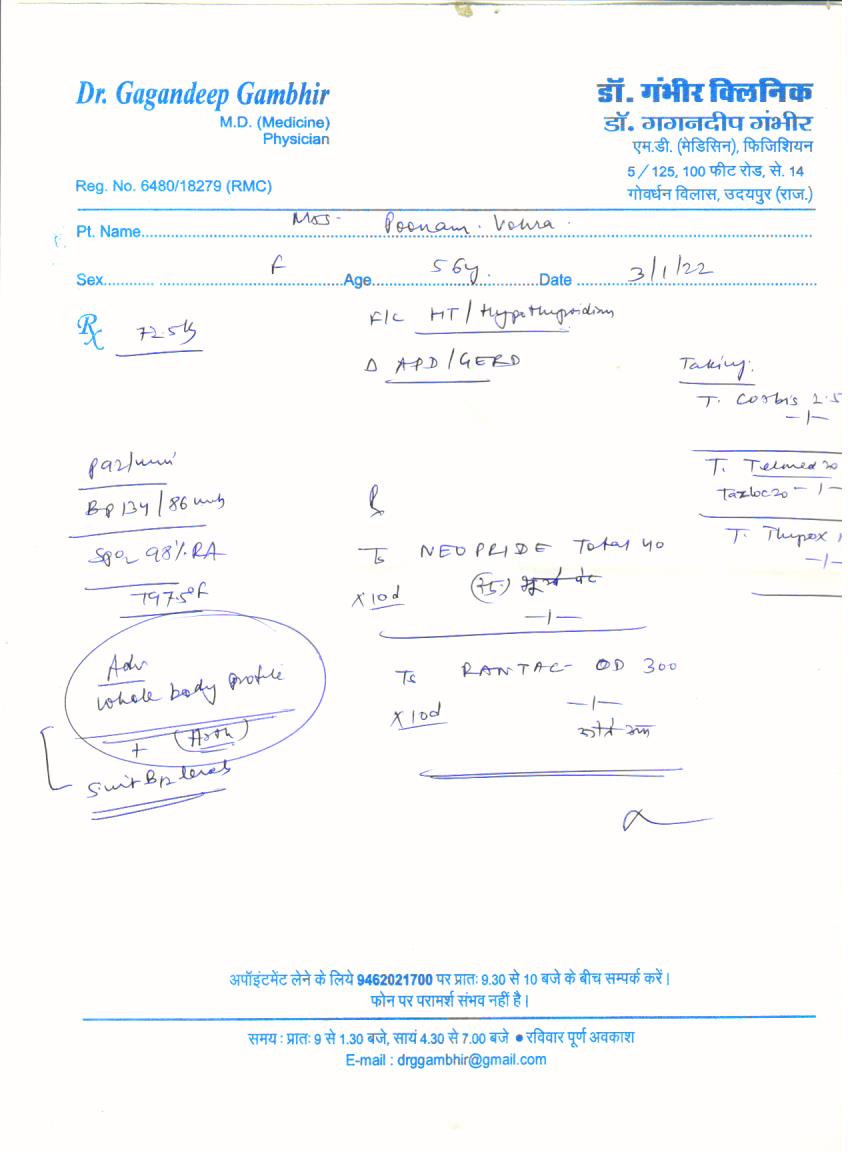 Dr. Gagandeep Gambhir
M.D. (Medicine)
Physician
Reg. No. 6480/18279 (RMC)
डॉ. गंभीर क्लिनिक
डॉ. गगनदीप गंभीर
एम.डी. (मेडिसिन), फिजिशियन
5/125, 100 फीट रोड, से. 14
गोवर्धन विलास, उदयपुर (राज.)
Pt. Name Mrs. Poonam. Vohra.
Sex F Age 56y. Date 3/1/22
Rx 72.5kg
F/C HT/Hypothyroidism
Δ APD/GERD
Taking:
T. Corbis 2.5
-1-
T. Telmed 20
Tazloc 20 -1-
T. Thyrox 1
-1-
P 92/min
BP 134/86
SpO2 98% RA
T 97.5°F
Adv
Whole body profile
+
Vit B12 levels
Rx
NEOPRIDE Total 40
x10d
-1-
RANTAC OD 300
x10d -1-
अपॉइंटमेंट लेने के लिये 9462021700 पर प्रातः 9.30 से 10 बजे के बीच सम्पर्क करें।
फोन पर परामर्श संभव नहीं है।
समय : प्रातः 9 से 1.30 बजे, सायं 4.30 से 7.00 बजे ● रविवार पूर्ण अवकाश
E-mail : drggambhir@gmail.com